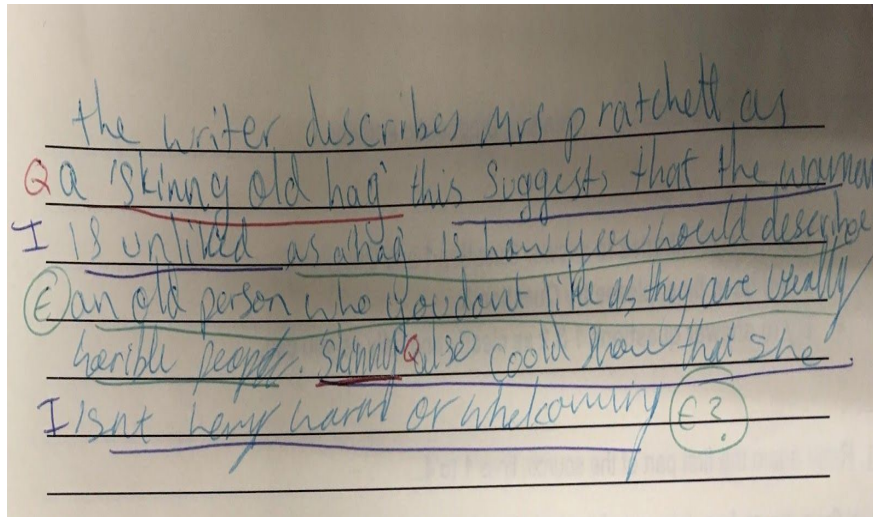 the writer describes Mrs pratchett as
Q a 'skinny old hag' this suggests that the woman
I is unliked as a hag is how you would describe
E an old person who you dont like as they are usually
horrible people. Skinny Q also could show that she
I isnt very warm or whelcoming E?